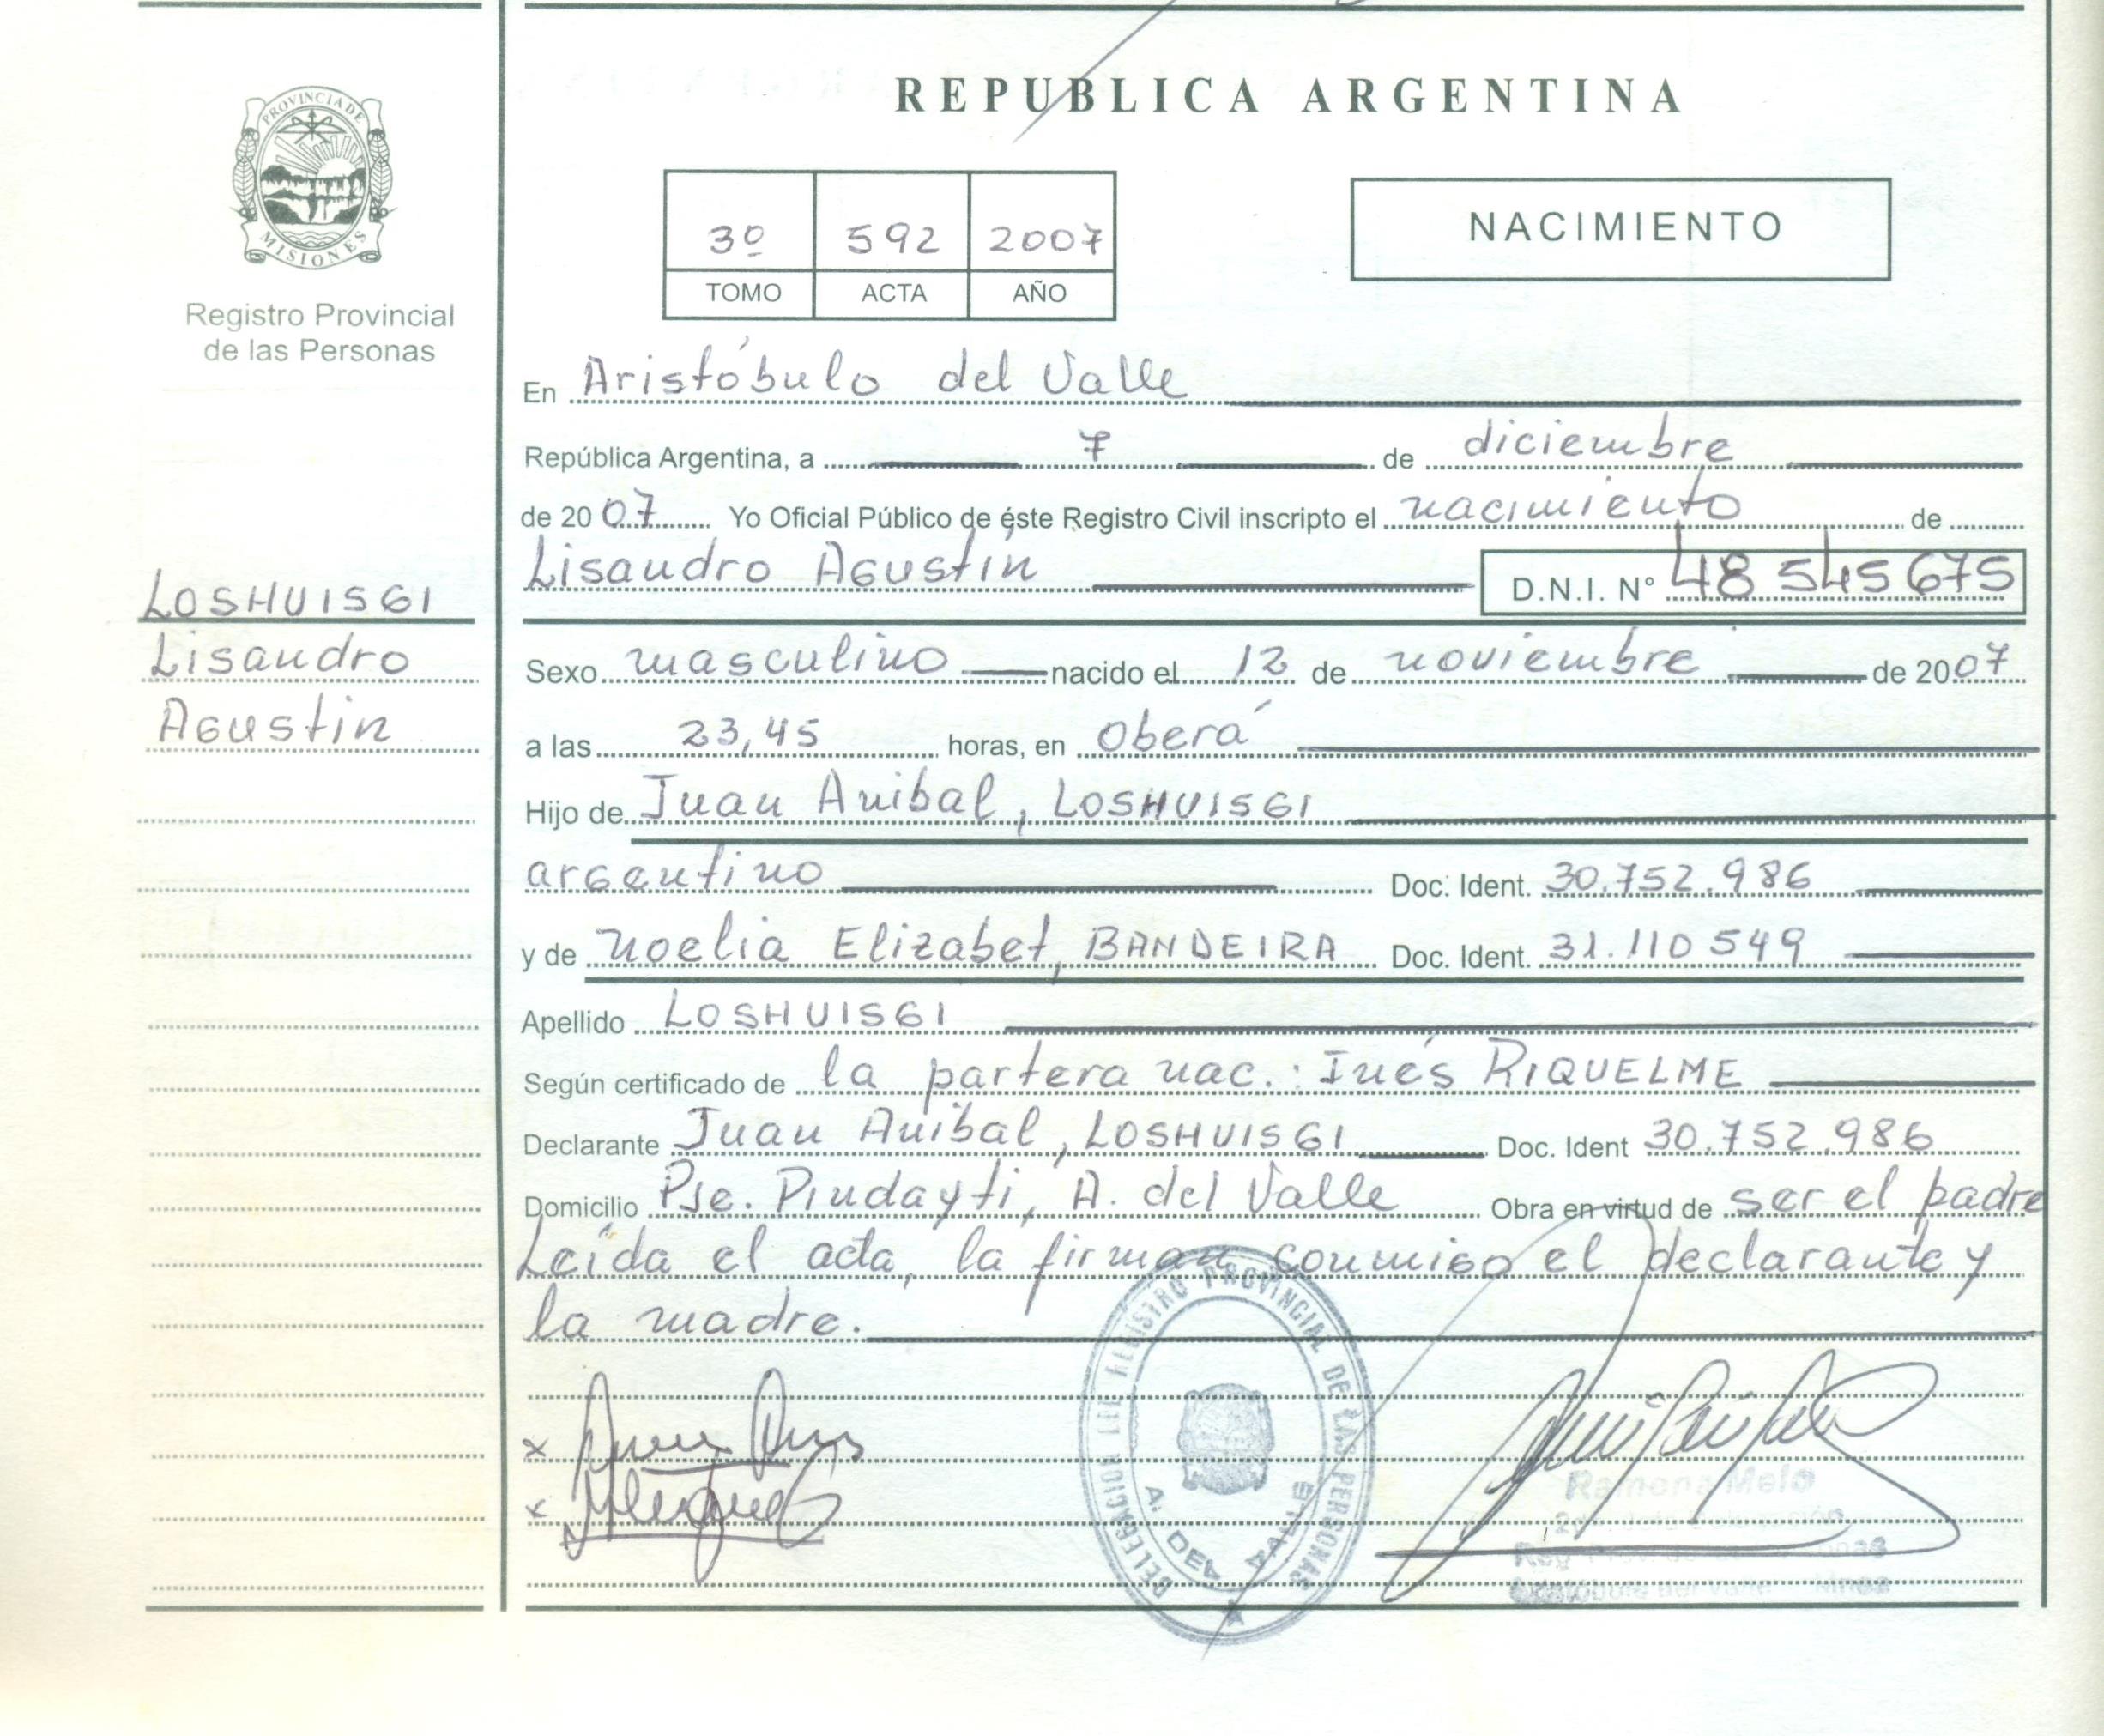 REPUBLICA ARGENTINA
PROVINCIA DE
MISIONES
Registro Provincial
de las Personas
3º 592 2007
TOMO ACTA AÑO
NACIMIENTO
En Aristóbulo del Valle
República Argentina, a 7 de diciembre
de 2007 Yo Oficial Público de éste Registro Civil inscripto el nacimiento de
Lisandro Agustín D.N.I. N° 48 545 675
LOSHUISGI
Lisandro
Agustin
Sexo masculino nacido el 12 de noviembre de 2007
a las 23,45 horas, en Oberá
Hijo de Juan Anibal, LOSHUISGI
argentino Doc. Ident. 30.752.986
y de Noelia Elizabet, BANDEIRA Doc. Ident. 31.110 549
Apellido LOSHUISGI
Según certificado de la partera nac.: Inés RIQUELME
Declarante Juan Anibal, LOSHUISGI Doc. Ident 30.752.986
Domicilio Pje. Pindayti, A. del Valle Obra en virtud de ser el padre
Leída el acta, la firman conmigo el declarante y
la madre.
REGISTRO PROVINCIAL DE LAS PERSONAS
A. DEL VALLE
Ramona Melo